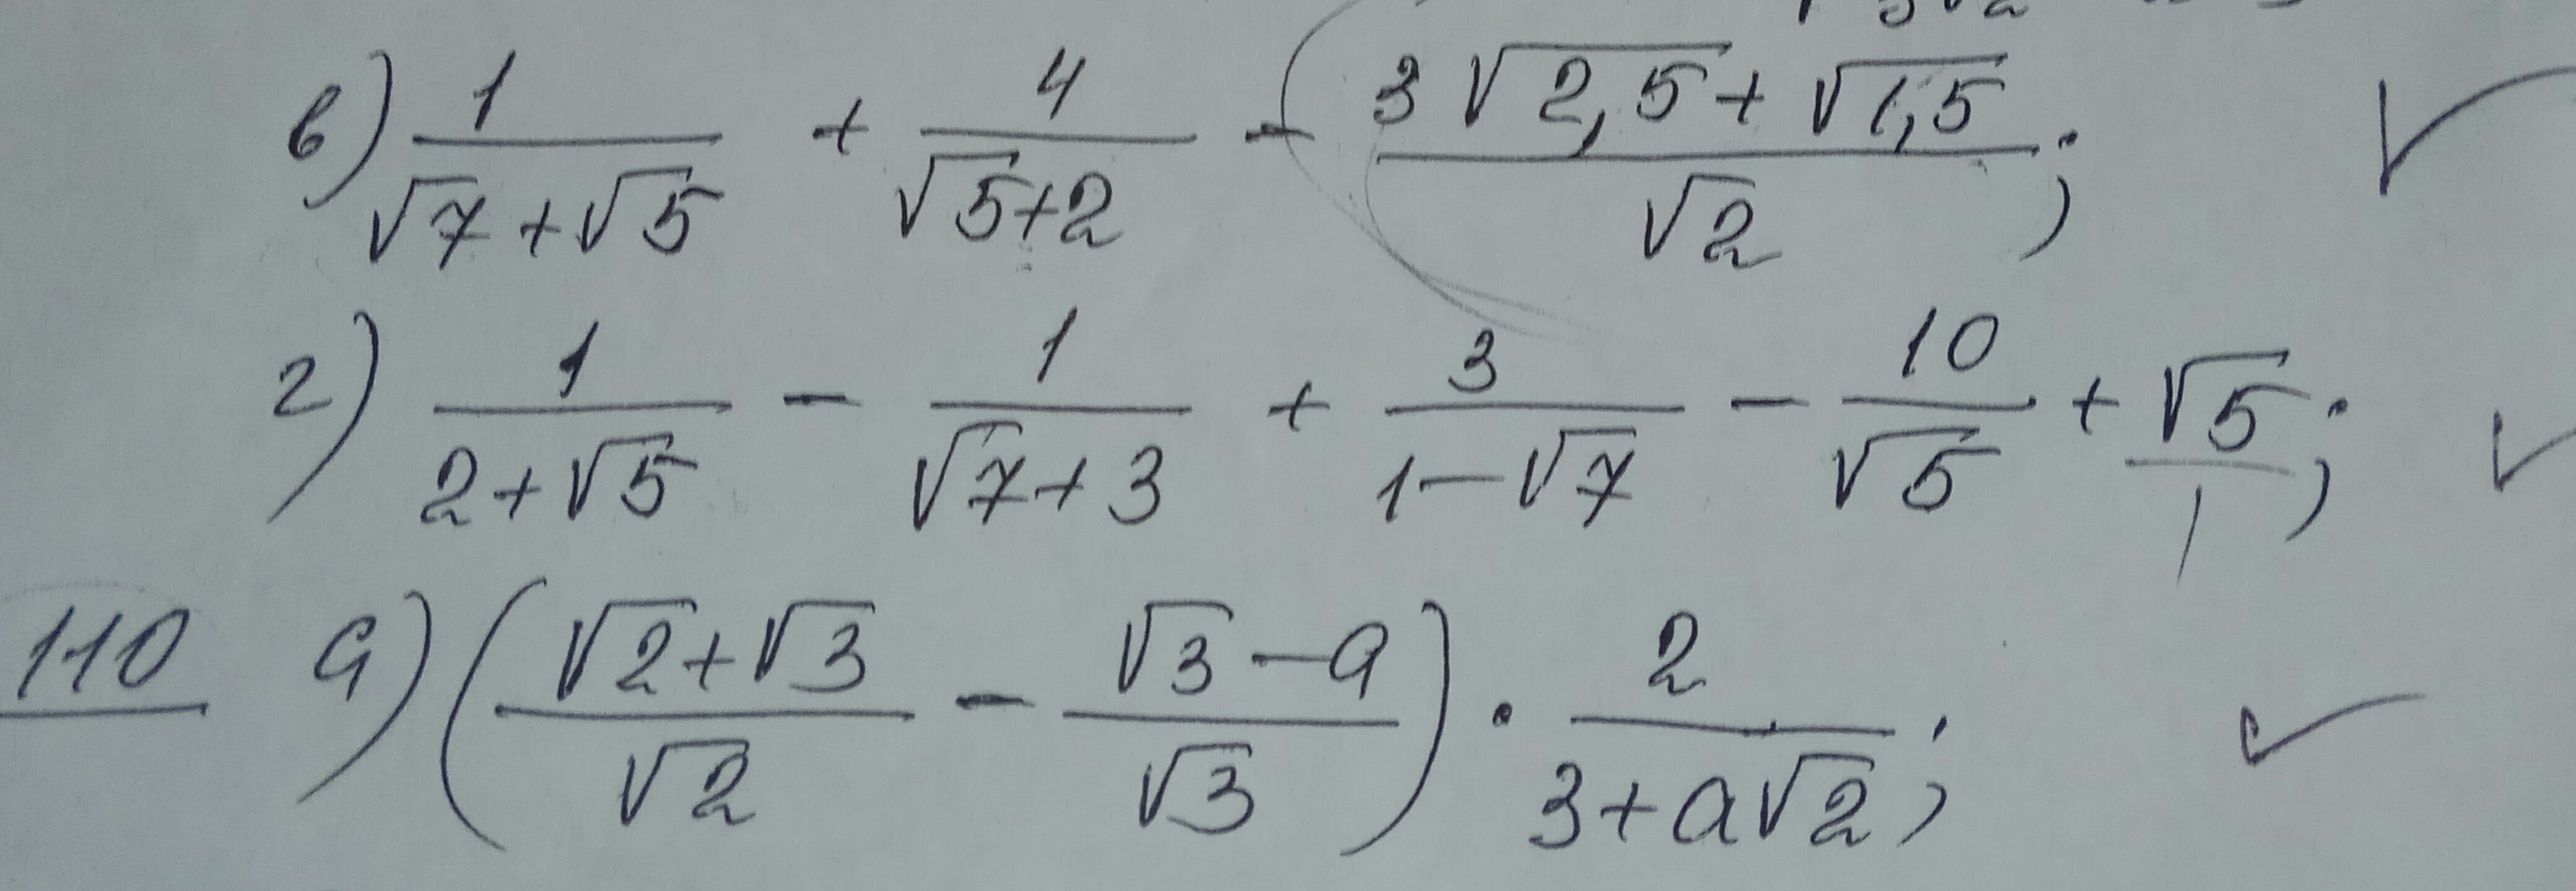 в) 1/(√7+√5) + 4/(√5+2) - (3√2,5+√1,5)/√2;
г) 1/(2+√5) - 1/(√7+3) + 3/(1-√7) - 10/√5 + √5/1;
110 а) ((√2+√3)/√2 - (√3-a)/√3) · 2/(3+a√2);